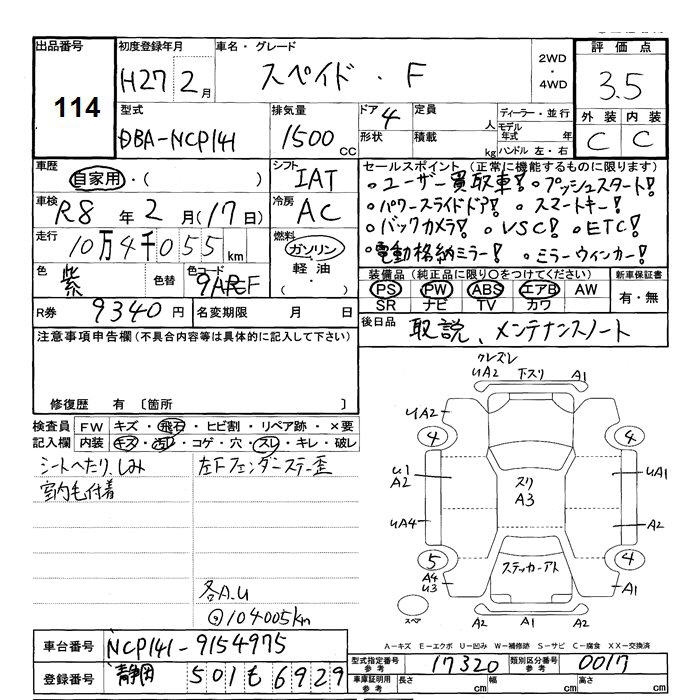 出品番号
114
初度登録年月
H27 2月
車名・グレード
スペイド・F
2WD
・
4WD
評価点
3.5
外装 内装
C C
型式
DBA-NCP141
排気量
1500 CC
ドア 4
形状
定員 人
積載 kg
ディーラー・並行
モデル年式 年
ハンドル 左・右
車歴
自家用・( )
車検
R8年2月(17日)
走行
10万4千055km
色
紫
色替
色コード
R券 9340円
名変期限 月 日
シフト
IAT
冷房
AC
燃料
ガソリン・
軽油・
( )
セールスポイント(正常に機能するものに限ります)
・ユーザー買取車! ・プッシュスタート!
・パワースライドドア! ・スマートキー!
・バックカメラ! ・VSC! ・ETC!
・電動格納ミラー! ・ミラーウィンカー!
装備品(純正品に限り○をつけてください)
PS PW ABS エアB AW
SR ナビ TV カワ
新車保証書
有・無
後日品
取説、メンテナンスノート
注意事項申告欄(不具合内容等は具体的に記入して下さい)
修復歴 有〔箇所 〕
検査員記入欄
FW キズ・飛石・ヒビ割・リペア跡・×要
内装 キズ・汚レ・コゲ・穴・スレ・キレ・破レ
シートへたり、しみ
室内毛付着
左Fフェンダーステー歪
各A.U
104005km
クレズレ
UA2 下スリ A1
UA2
4 4
U1
A2
スリ
A3
UA1
UA4
A2
5 4
A4
U3
ステッカーアト
A1
スペア
A2 A1 A2
A-キズ E-エクボ U-凹み W-補修跡 S-サビ C-腐食 XX-交換済
車台番号 NCP141-9154975
登録番号 静岡 501 も 6929
型式指定番号
参考
17320
類別区分番号
参考
0017
車庫証明用
参考
長さ cm
幅 cm
高さ cm